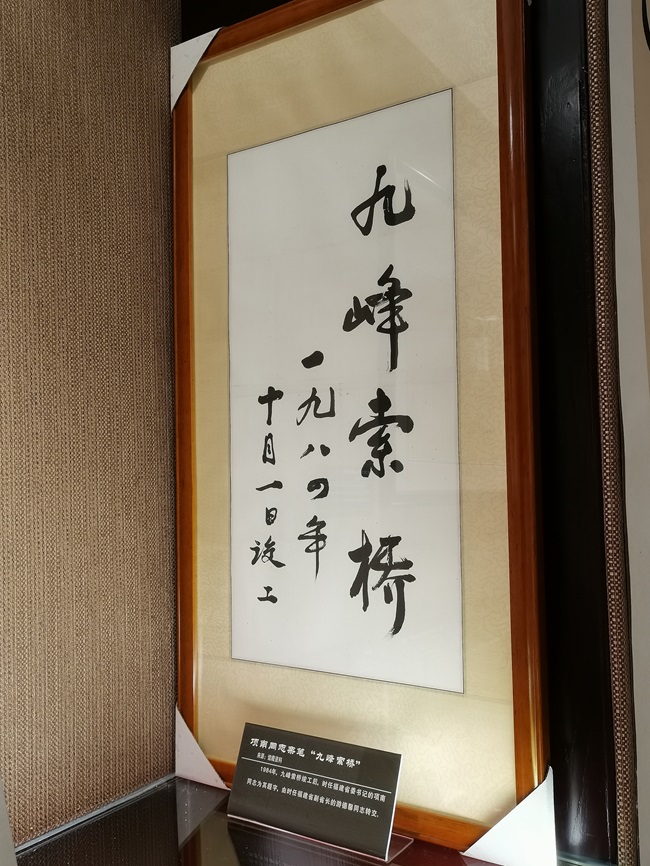 九峰索桥
一九八四年
十月一日竣工
项南同志亲笔“九峰索桥”
来源：馆藏资料
1984年，九峰索桥竣工后，时任福建省委书记的项南
同志为其题字，由时任福建省副省长的游德馨同志转交。